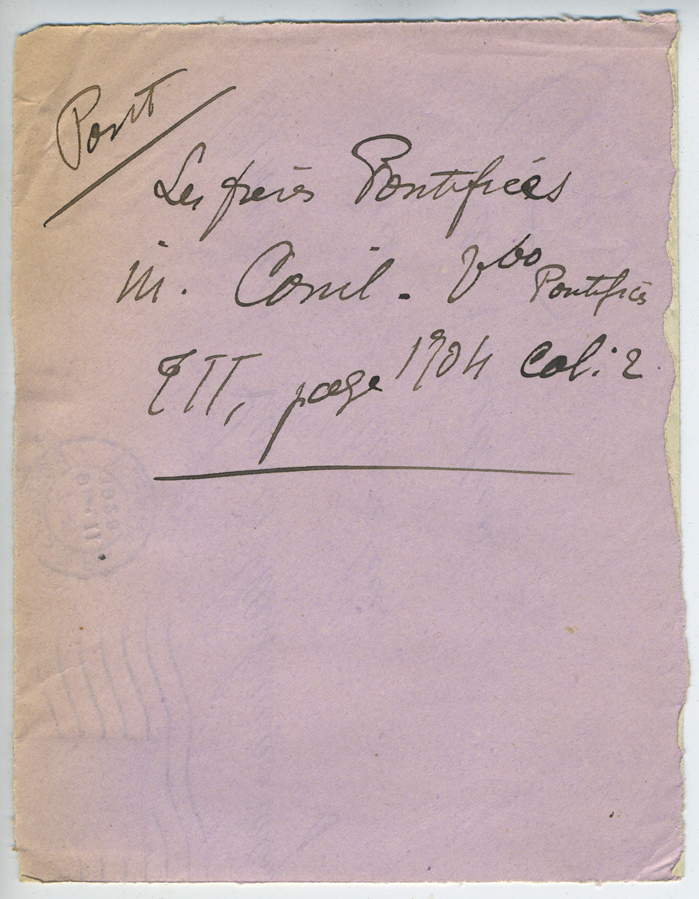 Pont
Les freres Pontifices
in. Conil. Vbo Pontifices
TII, page 1904 Col: 2.